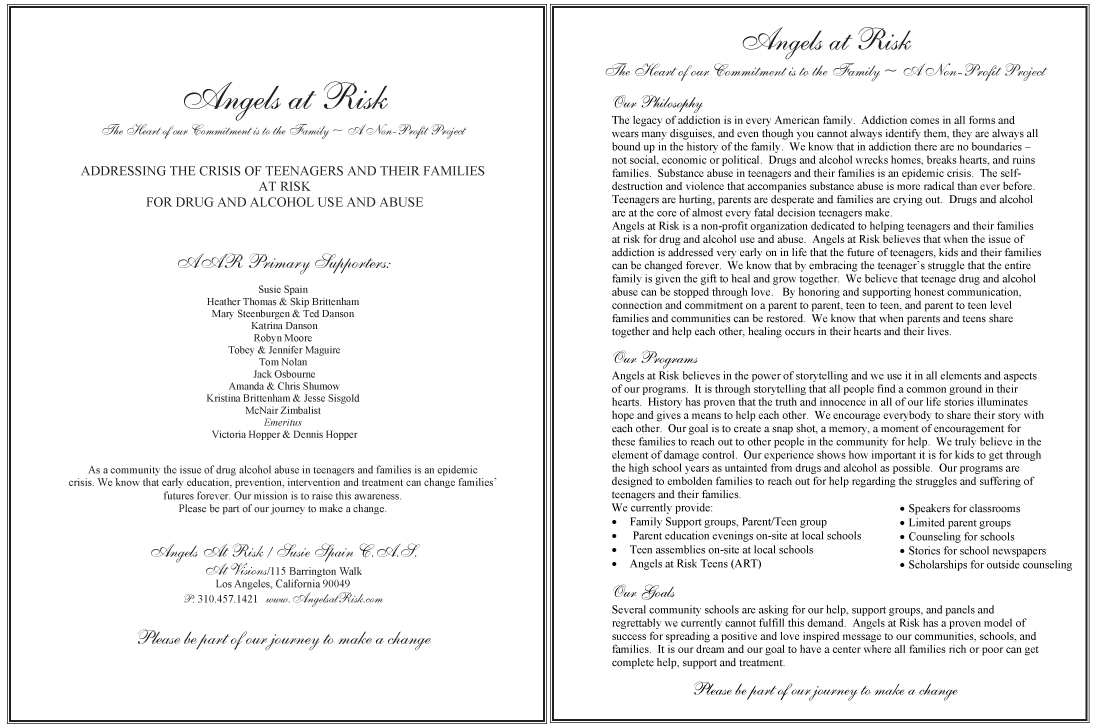 Angels at Risk
The Heart of our Commitment is to the Family ~ A Non-Profit Project
ADDRESSING THE CRISIS OF TEENAGERS AND THEIR FAMILIES
AT RISK
FOR DRUG AND ALCOHOL USE AND ABUSE
AAR Primary Supporters:
Susie Spain
Heather Thomas & Skip Brittenham
Mary Steenburgen & Ted Danson
Katrina Danson
Robyn Moore
Tobey & Jennifer Maguire
Tom Nolan
Jack Osbourne
Amanda & Chris Shumow
Kristina Brittenham & Jesse Sisgold
McNair Zimbalist
Emeritus
Victoria Hopper & Dennis Hopper
As a community the issue of drug alcohol abuse in teenagers and families is an epidemic
crisis. We know that early education, prevention, intervention and treatment can change families`
futures forever. Our mission is to raise this awareness.
Please be part of our journey to make a change.
Angels At Risk / Susie Spain C.A.S.
At Visions/115 Barrington Walk
Los Angeles, California 90049
P. 310.457.1421 www.AngelsatRisk.com
Please be part of our journey to make a change
Angels at Risk
The Heart of our Commitment is to the Family ~ A Non-Profit Project
Our Philosophy
The legacy of addiction is in every American family. Addiction comes in all forms and
wears many disguises, and even though you cannot always identify them, they are always all
bound up in the history of the family. We know that in addiction there are no boundaries –
not social, economic or political. Drugs and alcohol wrecks homes, breaks hearts, and ruins
families. Substance abuse in teenagers and their families is an epidemic crisis. The self-
destruction and violence that accompanies substance abuse is more radical than ever before.
Teenagers are hurting, parents are desperate and families are crying out. Drugs and alcohol
are at the core of almost every fatal decision teenagers make.
Angels at Risk is a non-profit organization dedicated to helping teenagers and their families
at risk for drug and alcohol use and abuse. Angels at Risk believes that when the issue of
addiction is addressed very early on in life that the future of teenagers, kids and their families
can be changed forever. We know that by embracing the teenager`s struggle that the entire
family is given the gift to heal and grow together. We believe that teenage drug and alcohol
abuse can be stopped through love. By honoring and supporting honest communication,
connection and commitment on a parent to parent, teen to teen, and parent to teen level
families and communities can be restored. We know that when parents and teens share
together and help each other, healing occurs in their hearts and their lives.
Our Programs
Angels at Risk believes in the power of storytelling and we use it in all elements and aspects
of our programs. It is through storytelling that all people find a common ground in their
hearts. History has proven that the truth and innocence in all of our life stories illuminates
hope and gives a means to help each other. We encourage everybody to share their story with
each other. Our goal is to create a snap shot, a memory, a moment of encouragement for
these families to reach out to other people in the community for help. We truly believe in the
element of damage control. Our experience shows how important it is for kids to get through
the high school years as untainted from drugs and alcohol as possible. Our programs are
designed to embolden families to reach out for help regarding the struggles and suffering of
teenagers and their families.
We currently provide:
• Family Support groups, Parent/Teen group
• Parent education evenings on-site at local schools
• Teen assemblies on-site at local schools
• Angels at Risk Teens (ART)
• Speakers for classrooms
• Limited parent groups
• Counseling for schools
• Stories for school newspapers
• Scholarships for outside counseling
Our Goals
Several community schools are asking for our help, support groups, and panels and
regrettably we currently cannot fulfill this demand. Angels at Risk has a proven model of
success for spreading a positive and love inspired message to our communities, schools, and
families. It is our dream and our goal to have a center where all families rich or poor can get
complete help, support and treatment.
Please be part of our journey to make a change